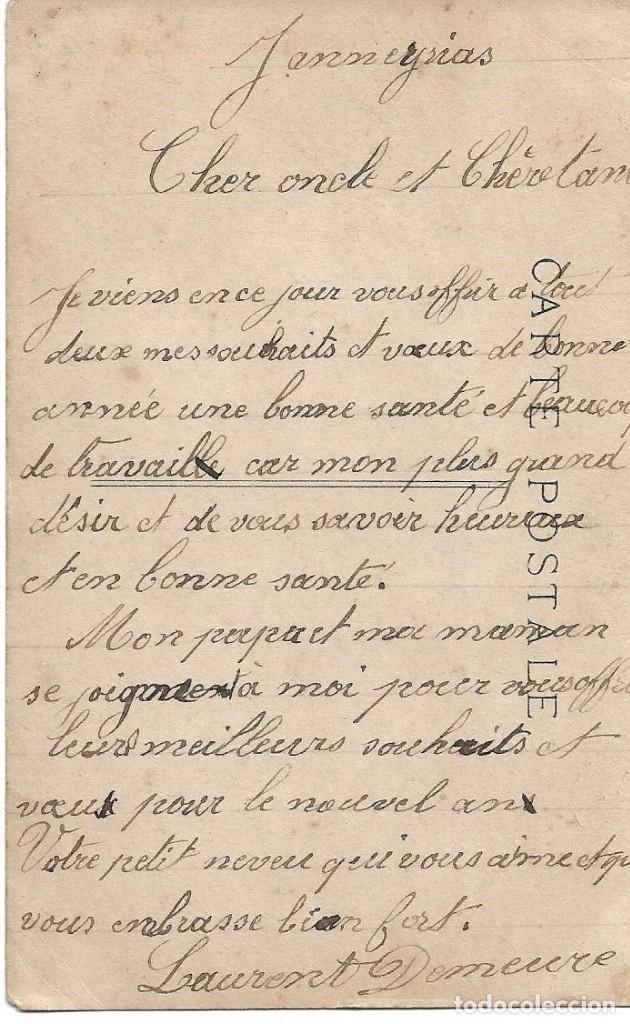 Janneyrias
Cher oncle et Chère tan
Je viens en ce jour vous offrir a tout
deux mes souhaits et vœux de bonne
année une bonne santé et beaucou
de travaille car mon plus grand
désir et de vous savoir heureux
et en bonne santé.
Mon papa et ma maman
se joignent à moi pour vous offri
leurs meilleurs souhaits et
vœux pour le nouvel an
Votre petit neveu qui vous aime et qu
vous enbrasse bien fort.
Laurent Demeure
CARTE POSTALE
todocoleccion